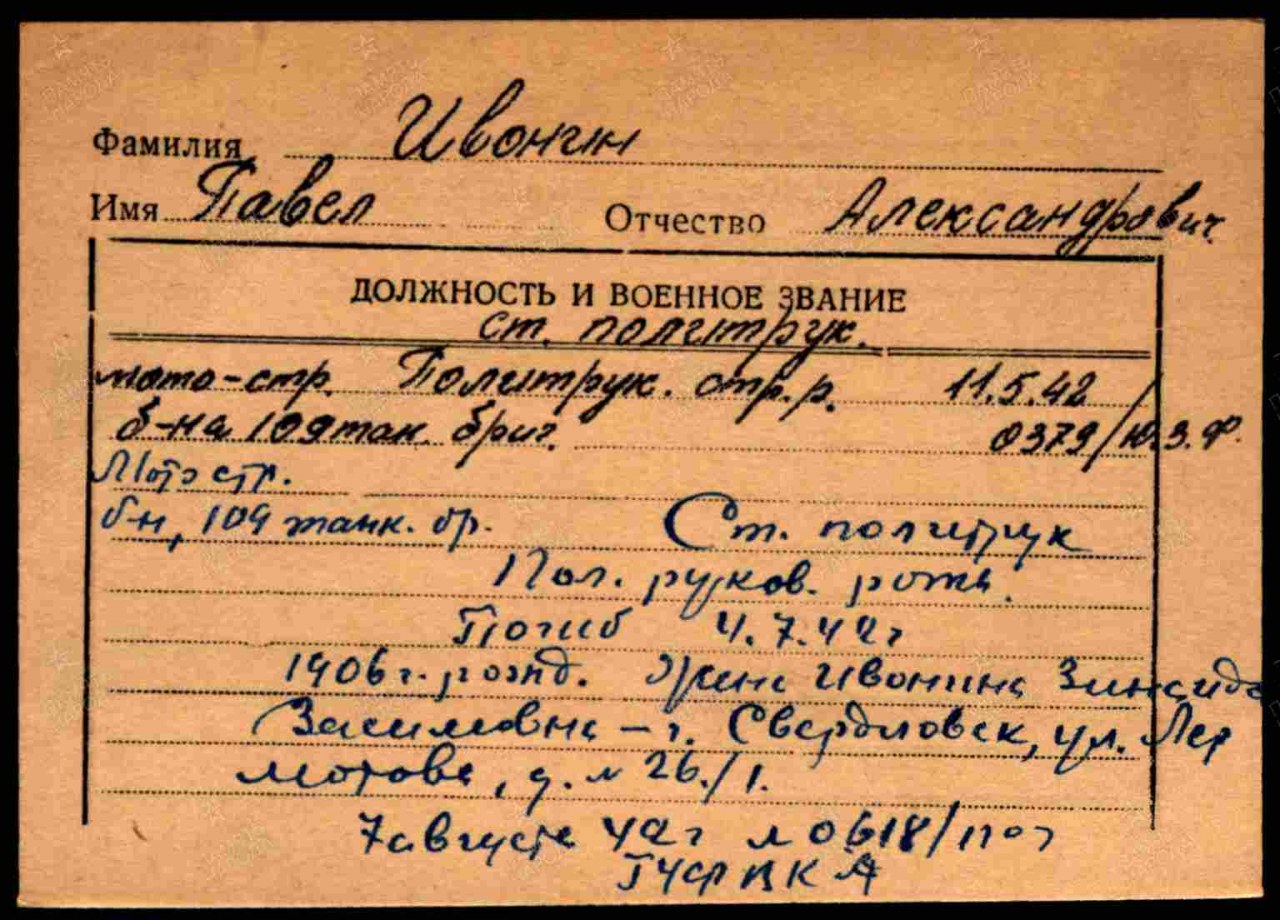 Фамилия Ивонин
Имя Павел Отчество Александрович
ДОЛЖНОСТЬ И ВОЕННОЕ ЗВАНИЕ
ст. политрук.
мото-стр. Политрук. стр. р. 11.5.42
б-на 109 тан. бриг. 0379/Ю.З.Ф.
Мото стр.
б-н, 109 танк. бр. Ст. политрук
Пол. руков. роты.
Погиб 4.7.42 г
1906 г. рожд. Жена Ивонина Зинаида
Засимовна – г. Свердловск, ул. Лер
монтова, д. № 26./1.
7 августа 42 г № 0618/пог
ГУФ ККА